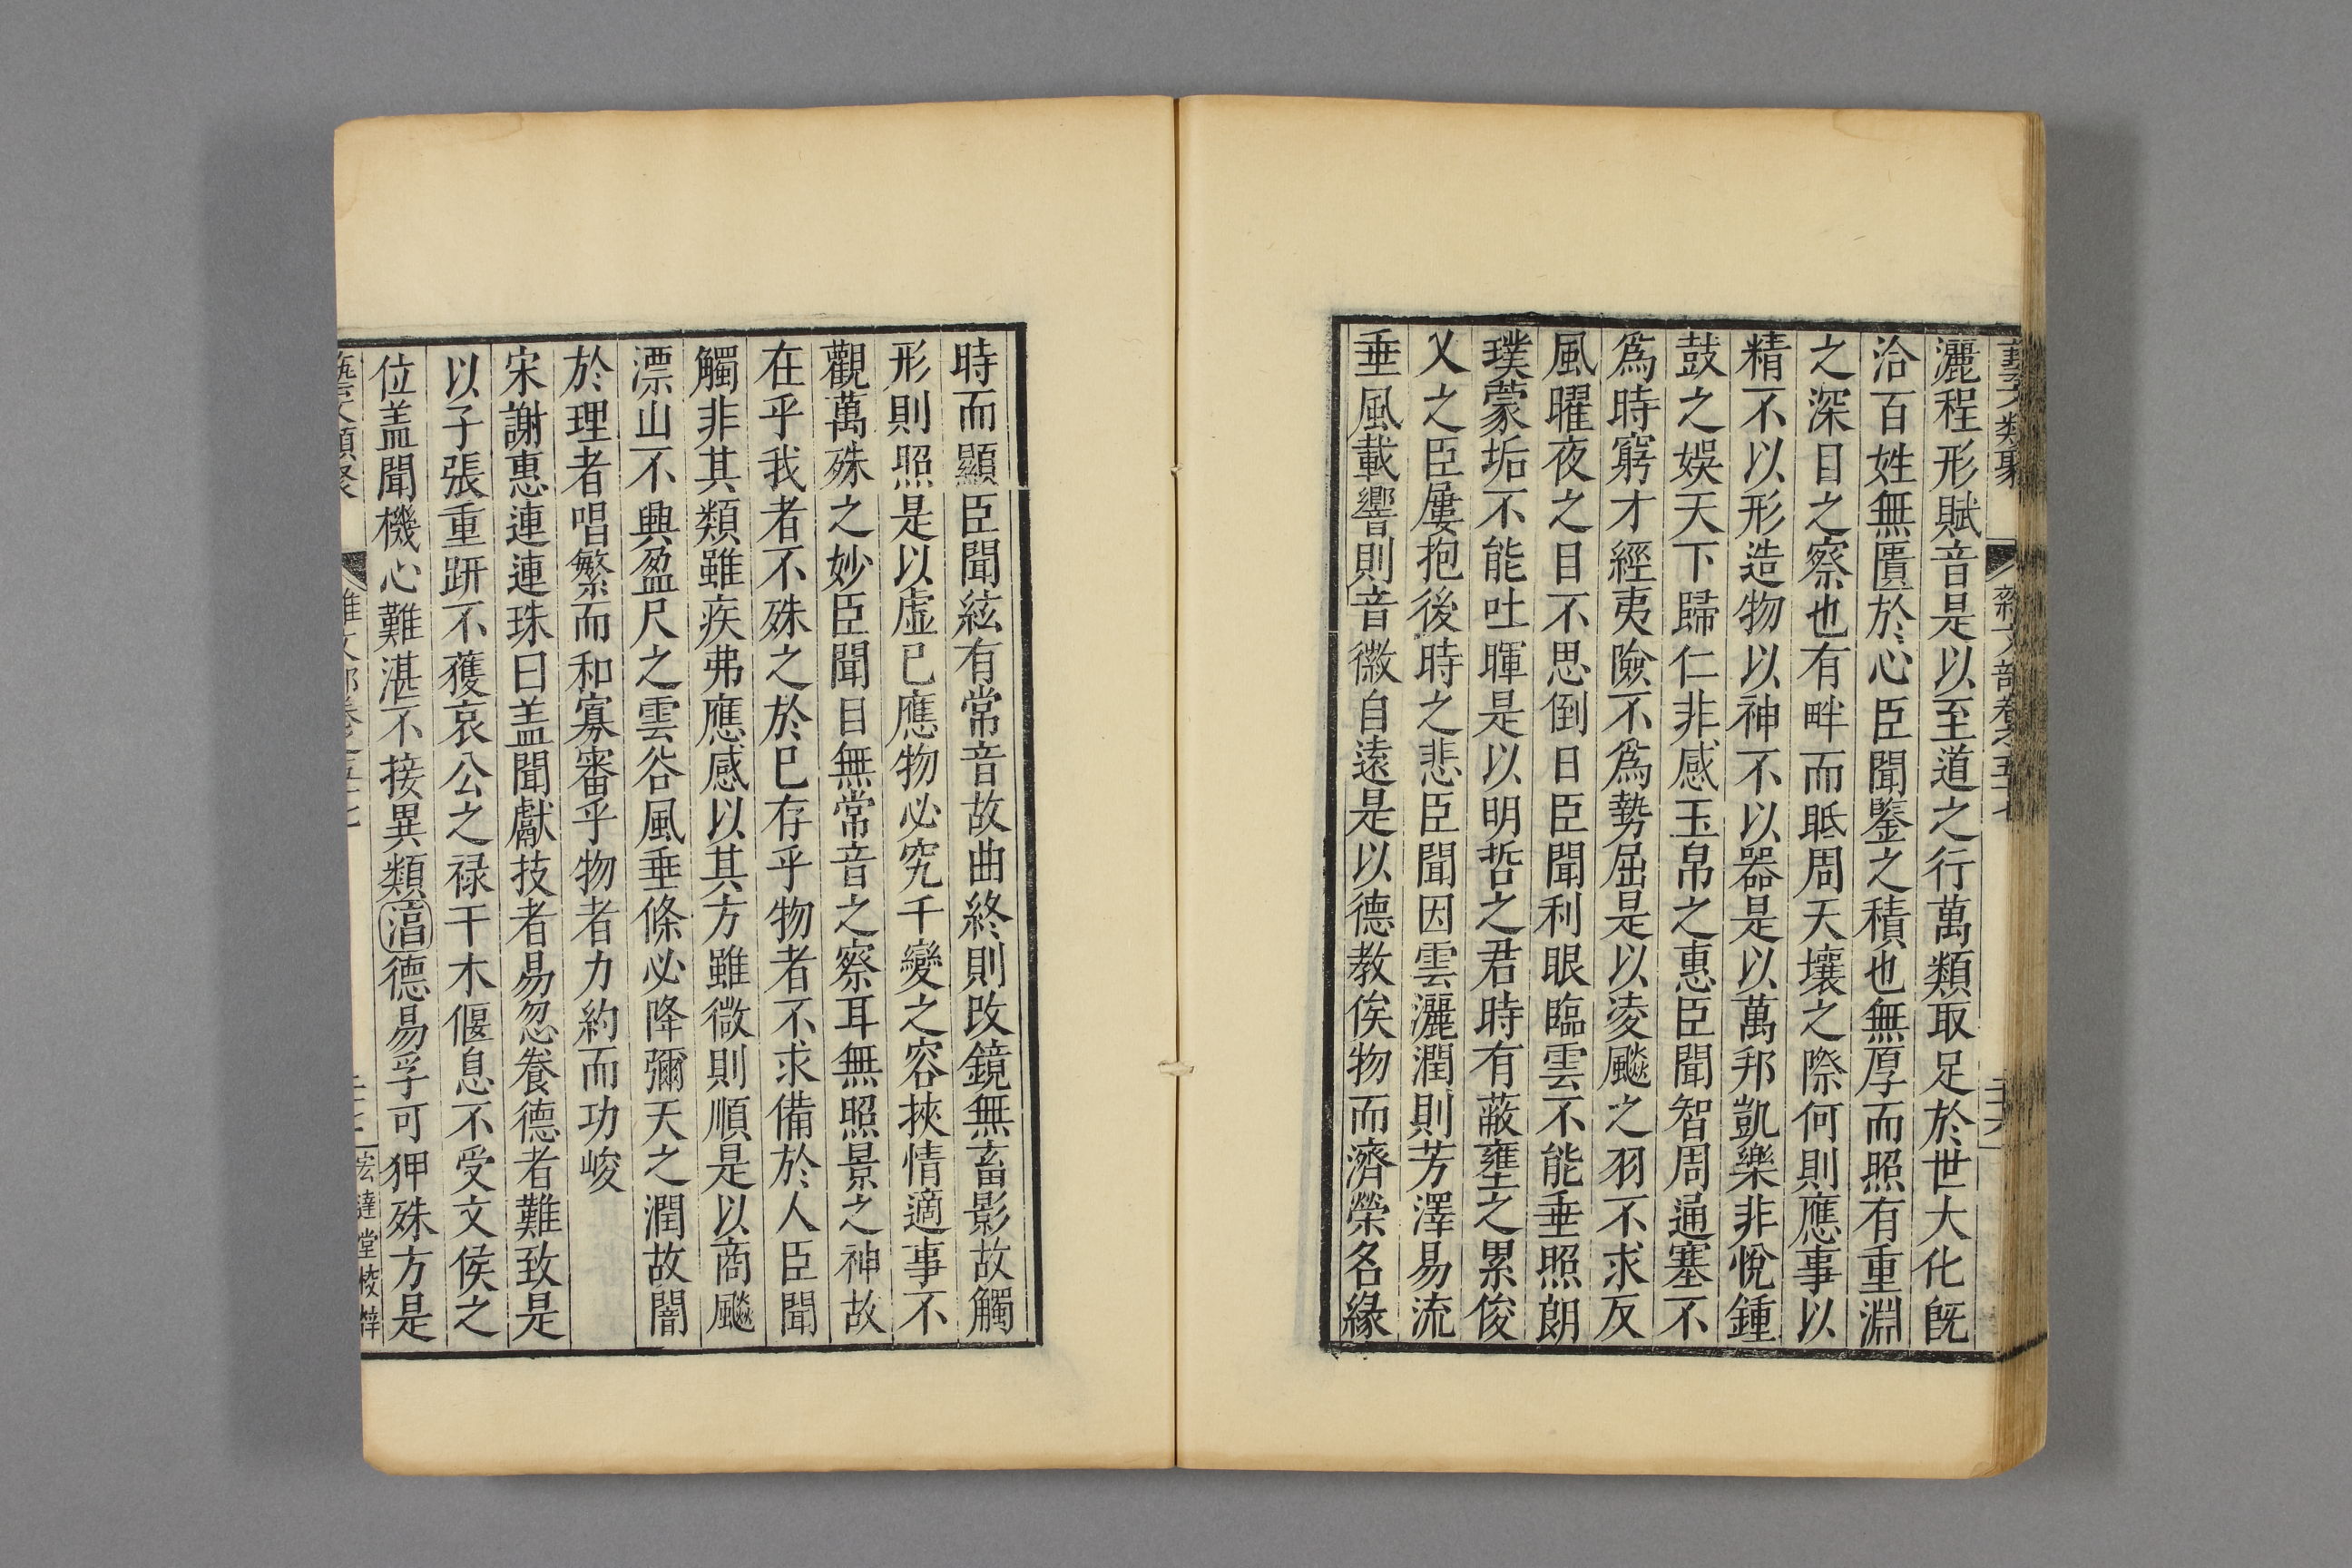 藝文類聚 雜文部卷之五十七 二十六
灑程形賦音是以至道之行萬類取足於世大化旣
洽百姓無匱於心臣聞鑒之積也無厚而照有重淵
之深目之察也有畔而眡周天壤之際何則應事以
精不以形造物以神不以器是以萬邦凱樂非悅鍾
鼓之娛天下歸仁非感玉帛之惠臣聞智周通塞不
爲時窮才經夷險不爲勢屈是以凌飈之羽不求反
風曜夜之目不思倒日臣聞利眼臨雲不能垂照朗
璞蒙垢不能吐暉是以明哲之君時有蔽壅之累俊
乂之臣屢抱後時之悲臣聞因雲灑潤則芳澤易流
垂風載響則音徽自遠是以德教俟物而濟榮名緣
時而顯臣聞絃有常音故曲終則改鏡無畜影故觸
形則照是以虛已應物必究千變之容挾情適事不
觀萬殊之妙臣聞目無常音之察耳無照景之神故
在乎我者不殊之於已存乎物者不求備於人臣聞
觸非其類雖疾弗應感以其方雖微則順是以商飈
漂山不興盈尺之雲谷風垂條必降彌天之潤故闇
於理者唱繁而和寡審乎物者力約而功峻
宋謝惠連連珠曰盖聞獻技者易忽養德者難致是
以子張重趼不獲哀公之禄干木偃息不受文侯之
位盖聞機心難湛不接異類淊德易孚可狎殊方是
藝文類聚 雜文部卷之五十七 二十七